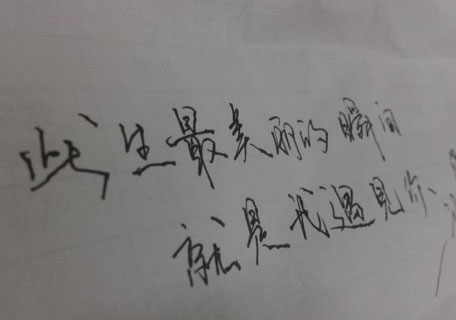 此生最美丽的瞬间
就是我遇见你、